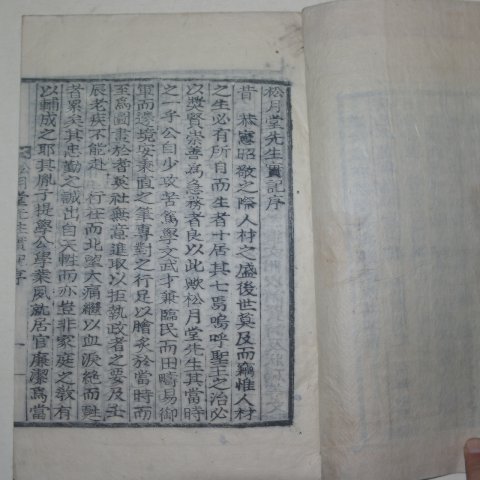 松月堂先生實記序
昔 恭憲昭敬之際人材之盛後世莫及而竊惟人材
之生必有所自而生者十居其七焉嗚呼聖王之治必
以奬賢崇善爲急務者良以此歟松月堂先生其當時
之一乎公自少攻苦篤學文武才兼臨民而田疇易御
軍而邊境安秉直之筆專對之行足以膾炙於當時而
至爲圖畫於耆英社無意進取以拒執政者之要及壬
辰老疾不能赴 行在而北望大痛繼以血淚絶而甦
者累矣其忠勤之誠出自天性而亦豈非家庭之敎有
以輔成之耶其胤子提學公學業夙就居官廉潔爲當
松月堂先生實記序